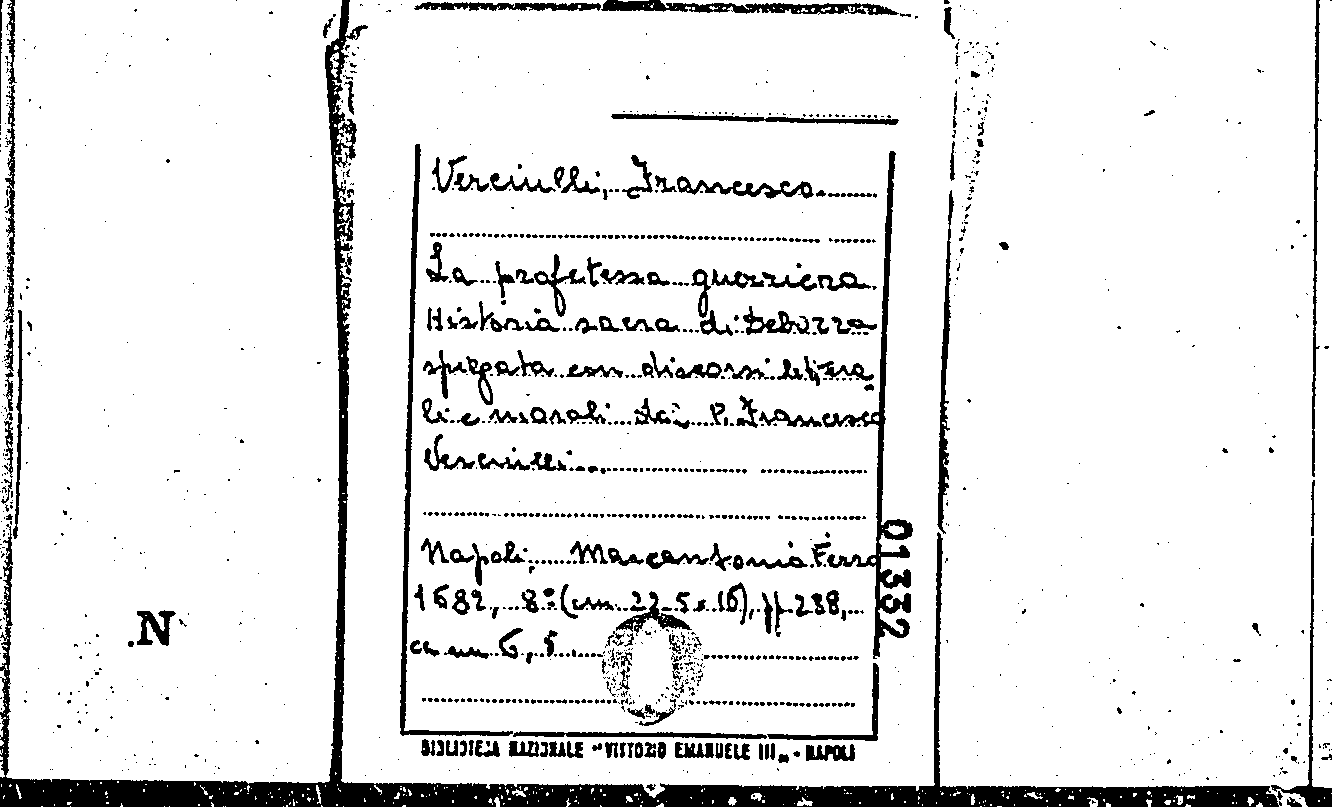 Verciulli, Francesco.
La profetessa guerriera
Historia sacra di Debora
spiegata con discorsi lettera
li e morali dai P. Francesco
Verciulli...
Napoli, Marcantonio Ferro
1682, 8º (cm 22.5x16), pp 288,
cm 6,5.
01332
.N
BIBLIOTECA NAZIONALE "VITTORIO EMANUELE III„ - NAPOLI